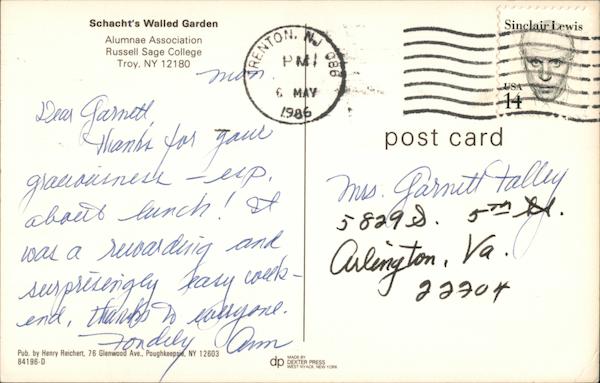 Schacht's Walled Garden
Alumnae Association
Russell Sage College
Troy, NY 12180
Mon
Dear Garnett,
Thanks for your
graciousness – esp.
about lunch! It
was a rewarding and
surprisingly easy week-
end, thanks to everyone.
Fondly Ann
Pub. by Henry Reichert, 76 Glenwood Ave., Poughkeepsie, N.Y. 12603
84196-D
TRENTON, NJ 086
PM
6 MAY
1986
Sinclair Lewis
USA
14
post card
Mrs. Garnett Talley
5829 S. 5th St.
Arlington, Va.
22204
dp MADE BY
DEXTER PRESS
WEST NYACK, NEW YORK